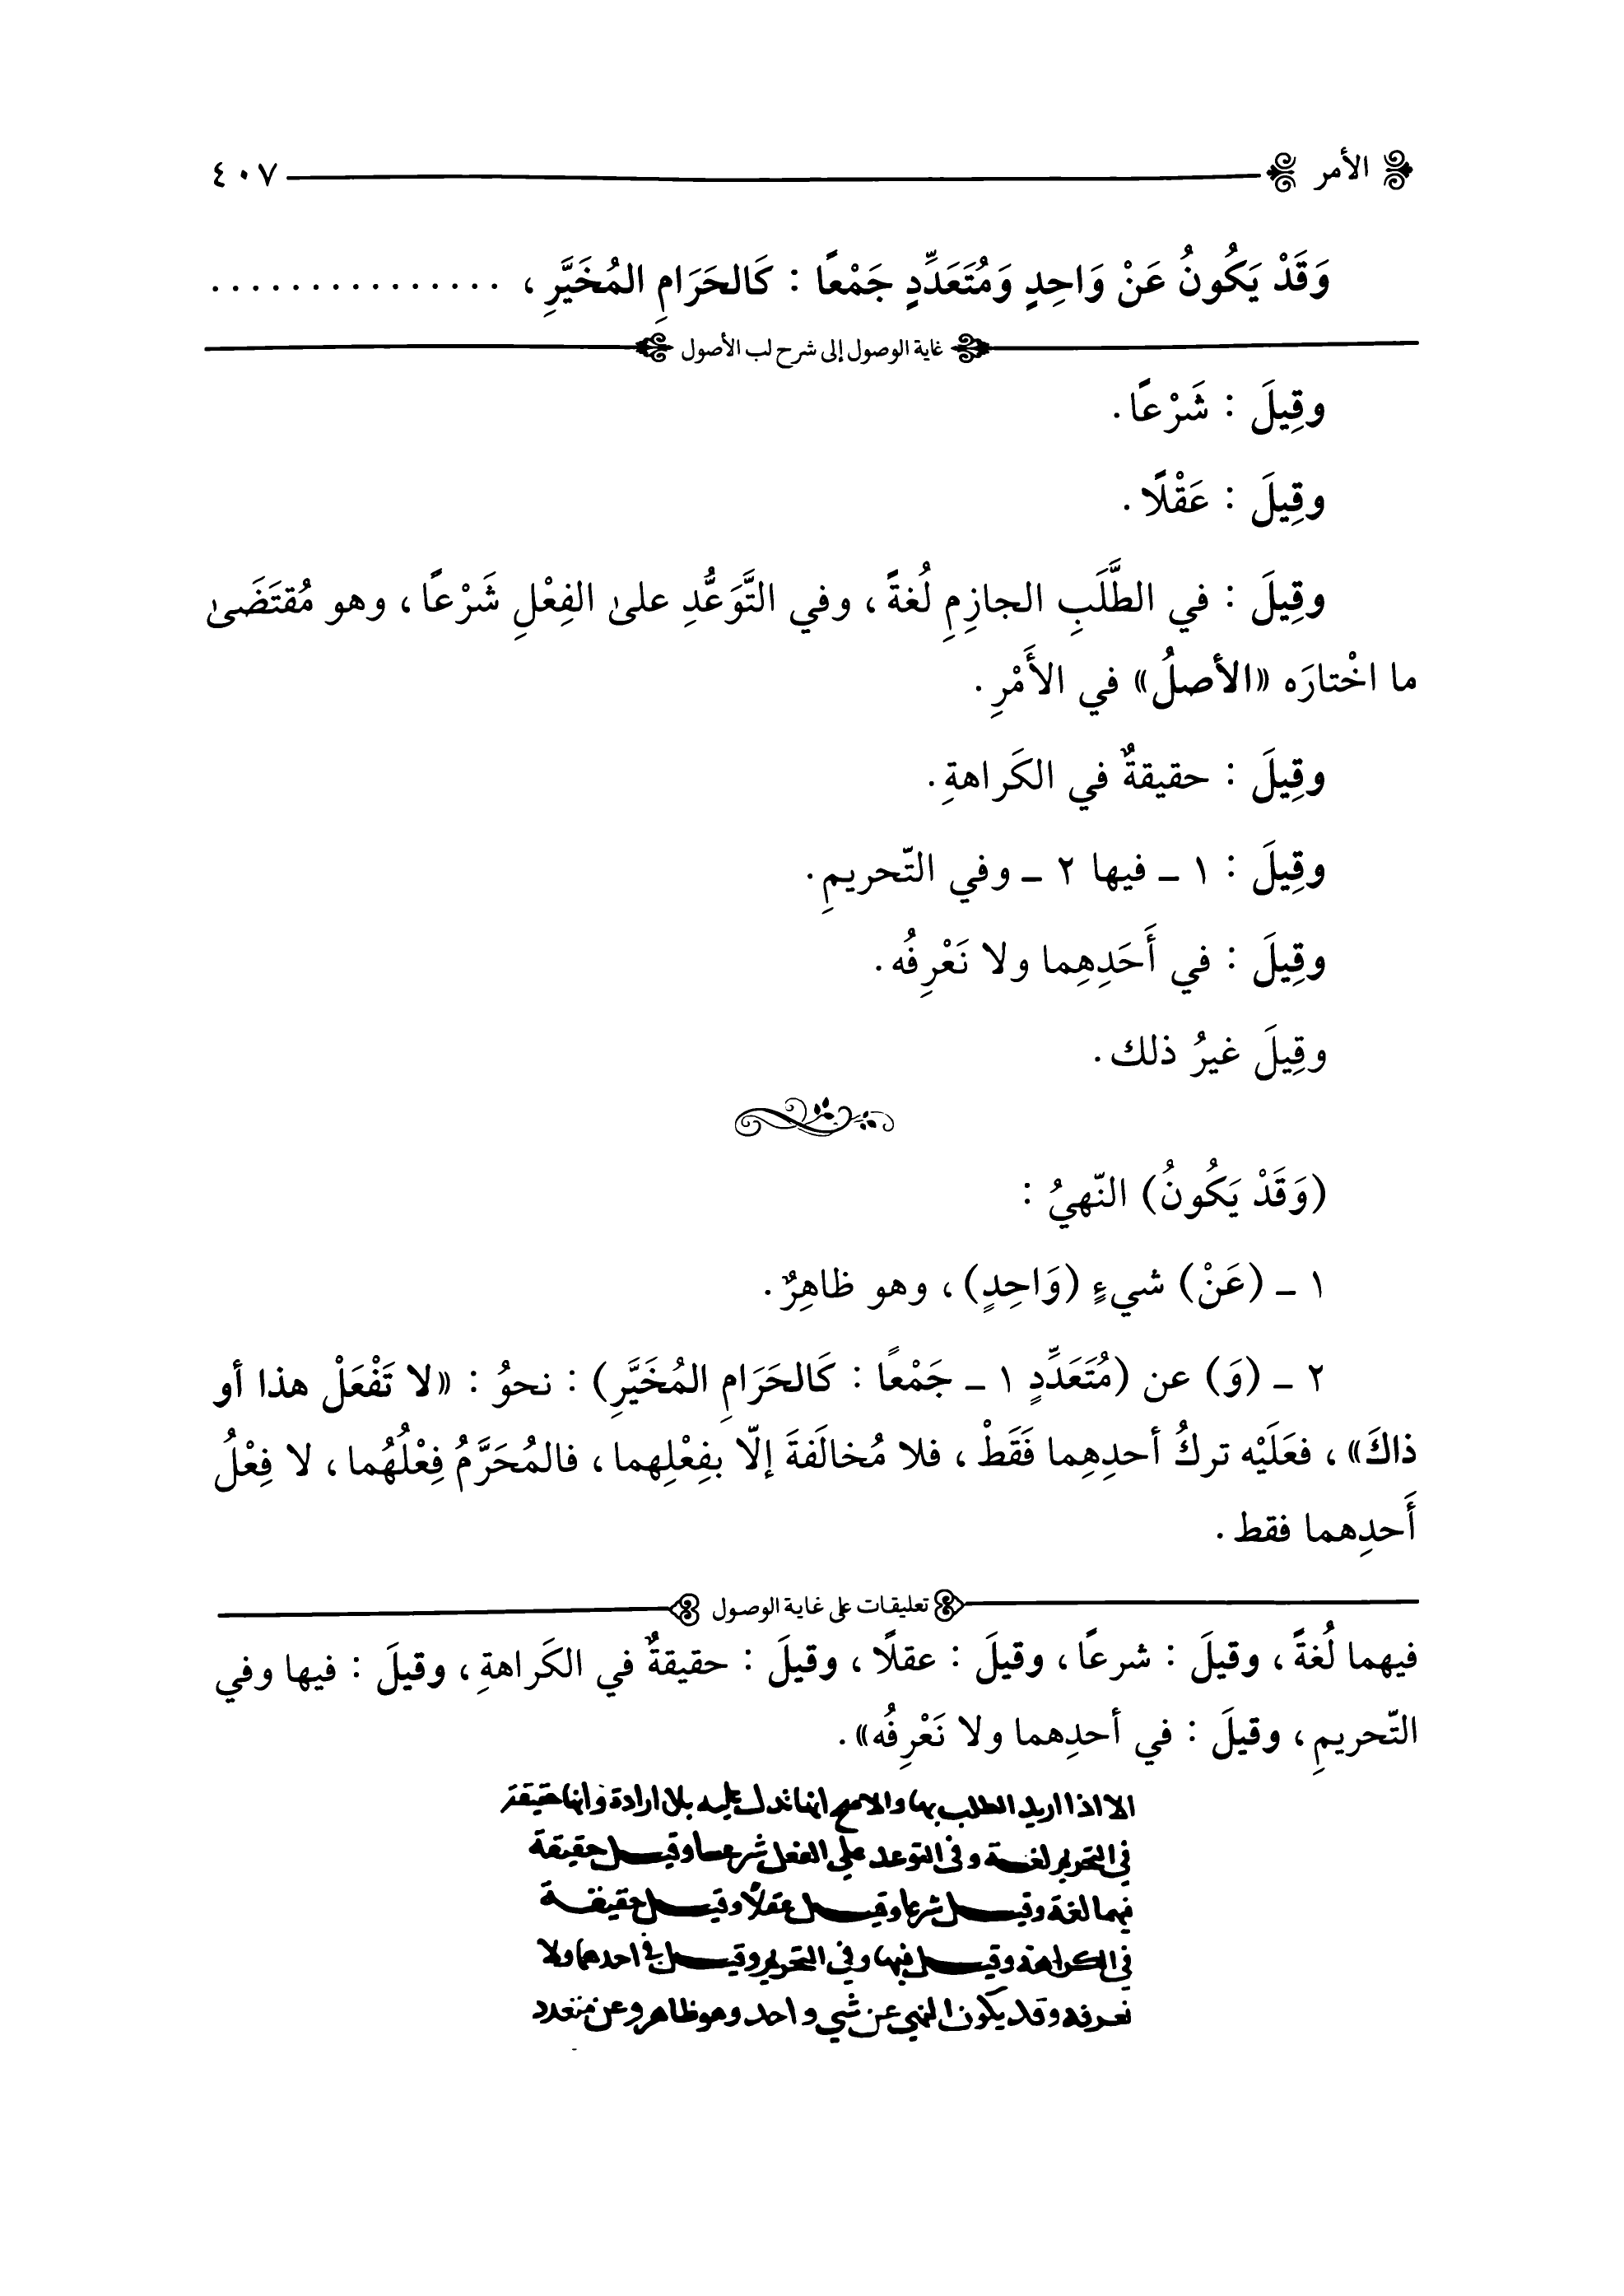 الأمر ٤٠٧
وَقَدْ يَكُونُ عَنْ وَاحِدٍ وَمُتَعَدِّدٍ جَمْعًا : كَالحَرَامِ المُخَيَّرِ ، ...............
غاية الوصول إلى شرح لب الأصول
وقِيلَ : شَرْعًا .
وقِيلَ : عَقْلًا .
وقِيلَ : في الطَّلَبِ الجازِمِ لُغةً ، وفي التَّوَعُّدِ علىٰ الفِعْلِ شَرْعًا ، وهو مُقتَضَىٰ
ما اخْتارَه «الأصلُ» في الأَمْرِ .
وقِيلَ : حقيقةٌ في الكَراهةِ .
وقِيلَ : ١ ـ فيها ٢ ـ وفي التّحريمِ .
وقِيلَ : في أَحَدِهِما ولا نَعْرِفُه .
وقِيلَ غيرُ ذلك .
(وَقَدْ يَكُونُ) النّهيُ :
١ ـ (عَنْ) شيءٍ (وَاحِدٍ) ، وهو ظاهِرٌ .
٢ ـ (وَ) عن (مُتَعَدِّدٍ ١ ـ جَمْعًا : كَالحَرَامِ المُخَيَّرِ) : نحوُ : «لا تَفْعَلْ هذا أو
ذاكَ» ، فعَلَيْه تركُ أحدِهِما فَقَطْ ، فلا مُخالَفةَ إلّا بفِعْلِهما ، فالمُحَرَّمُ فِعْلُهُما ، لا فِعْلُ
أَحدِهما فقط .
تعليقات على غاية الوصول
فيهما لُغةً ، وقيلَ : شرعًا ، وقيلَ : عقلًا ، وقيلَ : حقيقةٌ في الكَراهةِ ، وقيلَ : فيها وفي
التّحريمِ ، وقيلَ : في أحدِهما ولا نَعْرِفُه» .
الا اذا اريد الطلب بها والاصح انها تدل عليه بلا ارادة وانها حقيقة
في التحريم لغة وفي التوعد علي الفعل شرعا وقيل حقيقة
فيهما لغة وقيل شرعا وقيل عقلا وقيل حقيقة
في الكراهة وقيل فيها وفي التحريم وقيل في احدهما ولا
نعرفه وقد يكون النهي عن شي واحد وهو ظاهر وعن متعدد